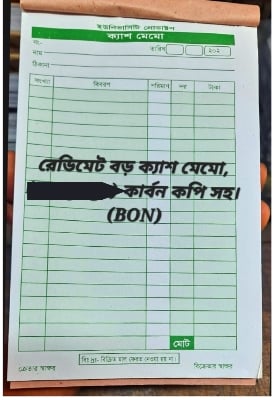 ক্যাশ মেমো
নং-
তারিখ
২০২
নাম
ঠিকানা
সংখ্যা
বিবরণ
পরিমাণ
দর
টাকা
রেডিমেট বড় ক্যাশ মেমো,
কার্বন কপি সহ।
(BON)
মোট
বিঃ দ্রঃ- বিক্রিত মাল ফেরত নেওয়া হয় না।
ক্রেতার স্বাক্ষর
বিক্রেতার স্বাক্ষর